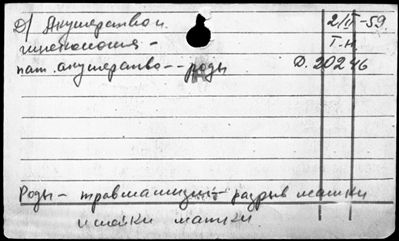 Д) Акушерство и 2/II-59.
гинекология - Т.н.
пат. акушерство -- роды Д. 20246
Роды - травматизм - разрыв матки
и шейки матки.